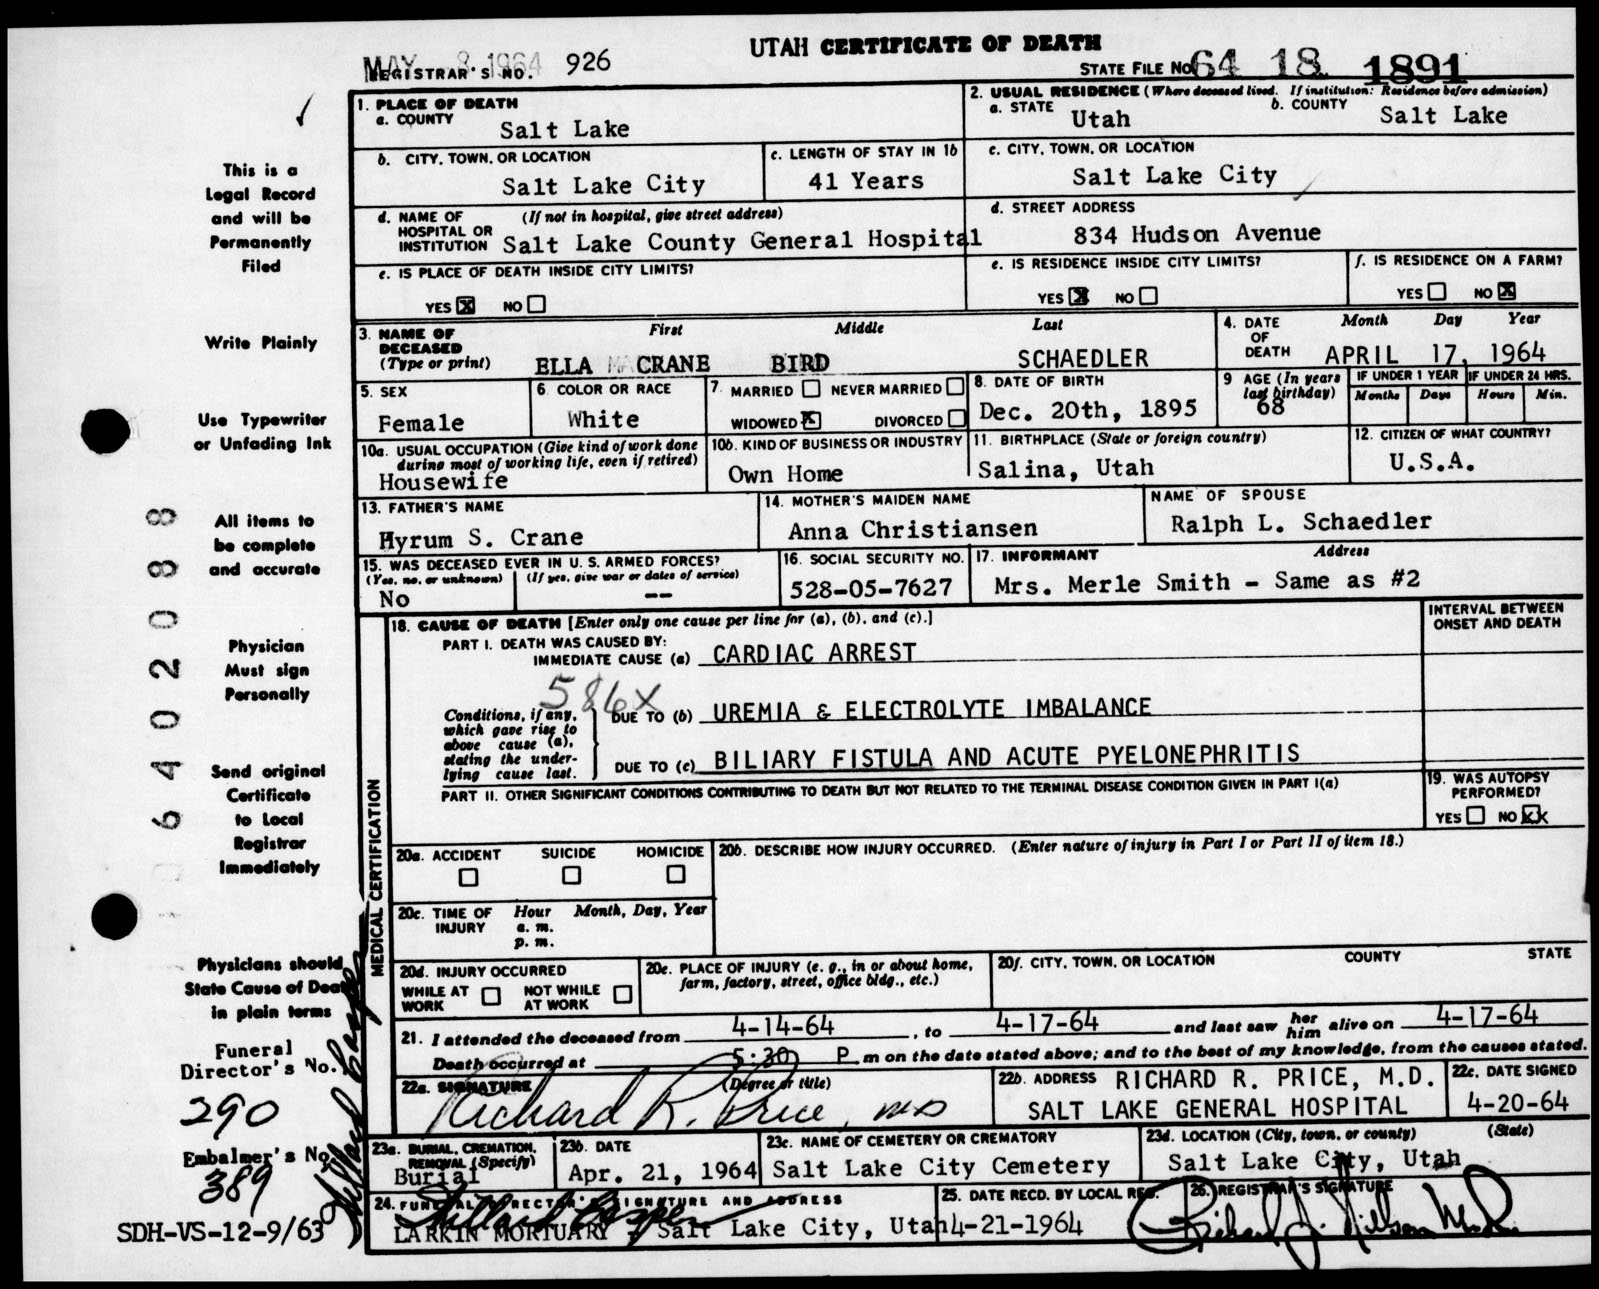 UTAH CERTIFICATE OF DEATH
MAY 8 1964
REGISTRAR'S NO. 926
STATE FILE NO. 64 18 1891
1. PLACE OF DEATH
a. COUNTY
Salt Lake
2. USUAL RESIDENCE (Where deceased lived. If institution: Residence before admission)
a. STATE
Utah
b. COUNTY
Salt Lake
b. CITY, TOWN, OR LOCATION
Salt Lake City
c. LENGTH OF STAY IN 1b
41 Years
c. CITY, TOWN, OR LOCATION
Salt Lake City
d. NAME OF HOSPITAL OR INSTITUTION
(If not in hospital, give street address)
Salt Lake County General Hospital
d. STREET ADDRESS
834 Hudson Avenue
e. IS PLACE OF DEATH INSIDE CITY LIMITS?
YES X NO
e. IS RESIDENCE INSIDE CITY LIMITS?
YES X NO
f. IS RESIDENCE ON A FARM?
YES NO X
3. NAME OF DECEASED
(Type or print)
First Middle Last
ELLA CRANE BIRD SCHAEDLER
4. DATE OF DEATH
Month Day Year
APRIL 17, 1964
5. SEX
Female
6. COLOR OR RACE
White
7. MARRIED NEVER MARRIED
WIDOWED X DIVORCED
8. DATE OF BIRTH
Dec. 20th, 1895
9 AGE (In years last birthday)
68
IF UNDER 1 YEAR
Months Days
IF UNDER 24 HRS.
Hours Min.
10a. USUAL OCCUPATION (Give kind of work done during most of working life, even if retired)
Housewife
10b. KIND OF BUSINESS OR INDUSTRY
Own Home
11. BIRTHPLACE (State or foreign country)
Salina, Utah
12. CITIZEN OF WHAT COUNTRY?
U.S.A.
13. FATHER'S NAME
Hyrum S. Crane
14. MOTHER'S MAIDEN NAME
Anna Christiansen
NAME OF SPOUSE
Ralph L. Schaedler
15. WAS DECEASED EVER IN U. S. ARMED FORCES?
(Yes, no, or unknown) (If yes, give war or dates of service)
No --
16. SOCIAL SECURITY NO.
528-05-7627
17. INFORMANT Address
Mrs. Merle Smith - Same as #2
MEDICAL CERTIFICATION
18. CAUSE OF DEATH [Enter only one cause per line for (a), (b), and (c).]
INTERVAL BETWEEN ONSET AND DEATH
PART I. DEATH WAS CAUSED BY:
IMMEDIATE CAUSE (a) CARDIAC ARREST
586X
Conditions, if any, which gave rise to above cause (a), stating the underlying cause last.
DUE TO (b) UREMIA & ELECTROLYTE IMBALANCE
DUE TO (c) BILIARY FISTULA AND ACUTE PYELONEPHRITIS
PART II. OTHER SIGNIFICANT CONDITIONS CONTRIBUTING TO DEATH BUT NOT RELATED TO THE TERMINAL DISEASE CONDITION GIVEN IN PART I(a)
19. WAS AUTOPSY PERFORMED?
YES NO XX
20a. ACCIDENT SUICIDE HOMICIDE
20b. DESCRIBE HOW INJURY OCCURRED. (Enter nature of injury in Part I or Part II of item 18.)
20c. TIME OF INJURY
Hour Month, Day, Year
a. m.
p. m.
20d. INJURY OCCURRED
WHILE AT WORK NOT WHILE AT WORK
20e. PLACE OF INJURY (e. g., in or about home, farm, factory, street, office bldg., etc.)
20f. CITY, TOWN, OR LOCATION COUNTY STATE
21. I attended the deceased from 4-14-64, to 4-17-64 and last saw her him alive on 4-17-64
Death occurred at 5:30 P. m on the date stated above; and to the best of my knowledge, from the causes stated.
22a. SIGNATURE (Degree or title)
Richard R. Price, MD
22b. ADDRESS RICHARD R. PRICE, M.D.
SALT LAKE GENERAL HOSPITAL
22c. DATE SIGNED
4-20-64
23a. BURIAL, CREMATION, REMOVAL (Specify)
Burial
23b. DATE
Apr. 21, 1964
23c. NAME OF CEMETERY OR CREMATORY
Salt Lake City Cemetery
23d. LOCATION (City, town, or county) (State)
Salt Lake City, Utah
24. FUNERAL DIRECTOR'S SIGNATURE AND ADDRESS
LARKIN MORTUARY - Salt Lake City, Utah
25. DATE RECD. BY LOCAL REG.
4-21-1964
26. REGISTRAR'S SIGNATURE
This is a
Legal Record
and will be
Permanently
Filed
Write Plainly
Use Typewriter
or Unfading Ink
All items to
be complete
and accurate
Physician
Must sign
Personally
Send original
Certificate
to Local
Registrar
Immediately
Physicians should
State Cause of Death
in plain terms
Funeral
Director's No.
290
Embalmer's No.
389
SDH-VS-12-9/63
6402088